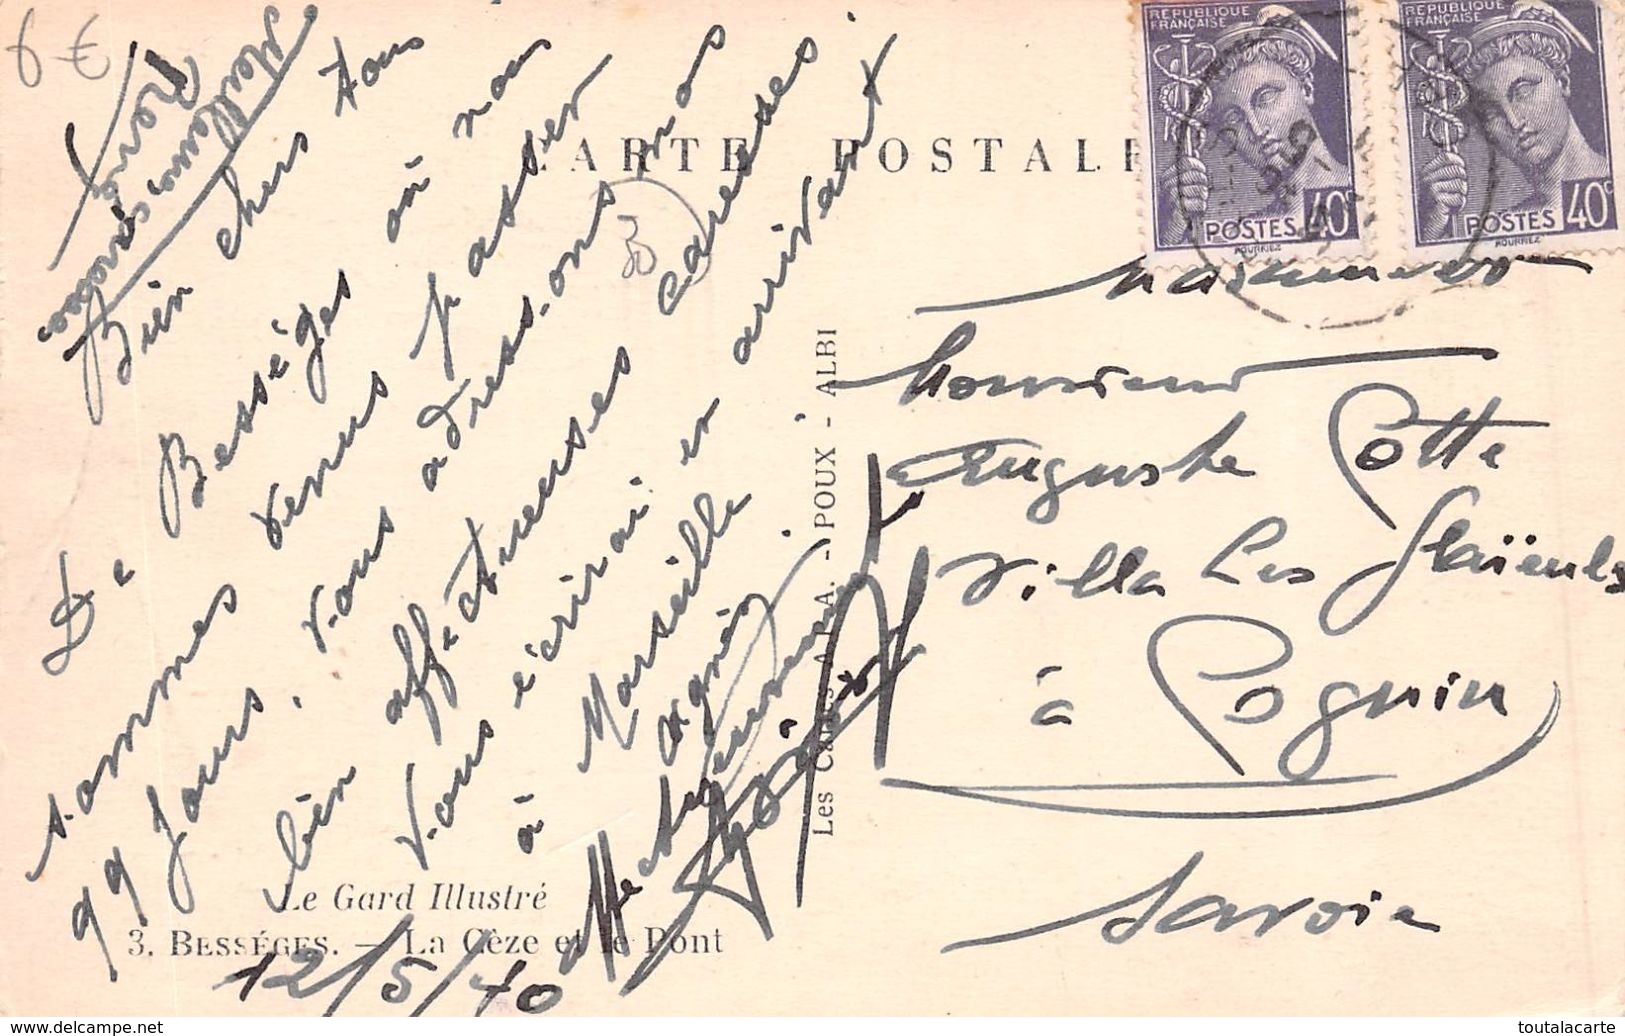 6 €
RÉPUBLIQUE
FRANÇAISE
POSTES 40
RÉPUBLIQUE
FRANÇAISE
POSTES 40c
CARTE POSTALE
Bien chers tous
De Bességes où nous
sommes venus passer
qq jours, vous adressons nos
bien affectueuses caresses
Vous écrirai en arrivant
à Marseille
Meilleurs
Monsieur
Auguste Cotte
Villa Les
à Cognin
Savoie
Les Cartes A.P.A. - POUX - ALBI
Le Gard Illustré
3. BESSÉGES. — La Cèze et le Pont
12/5/40
www.delcampe.net
toutalacarte